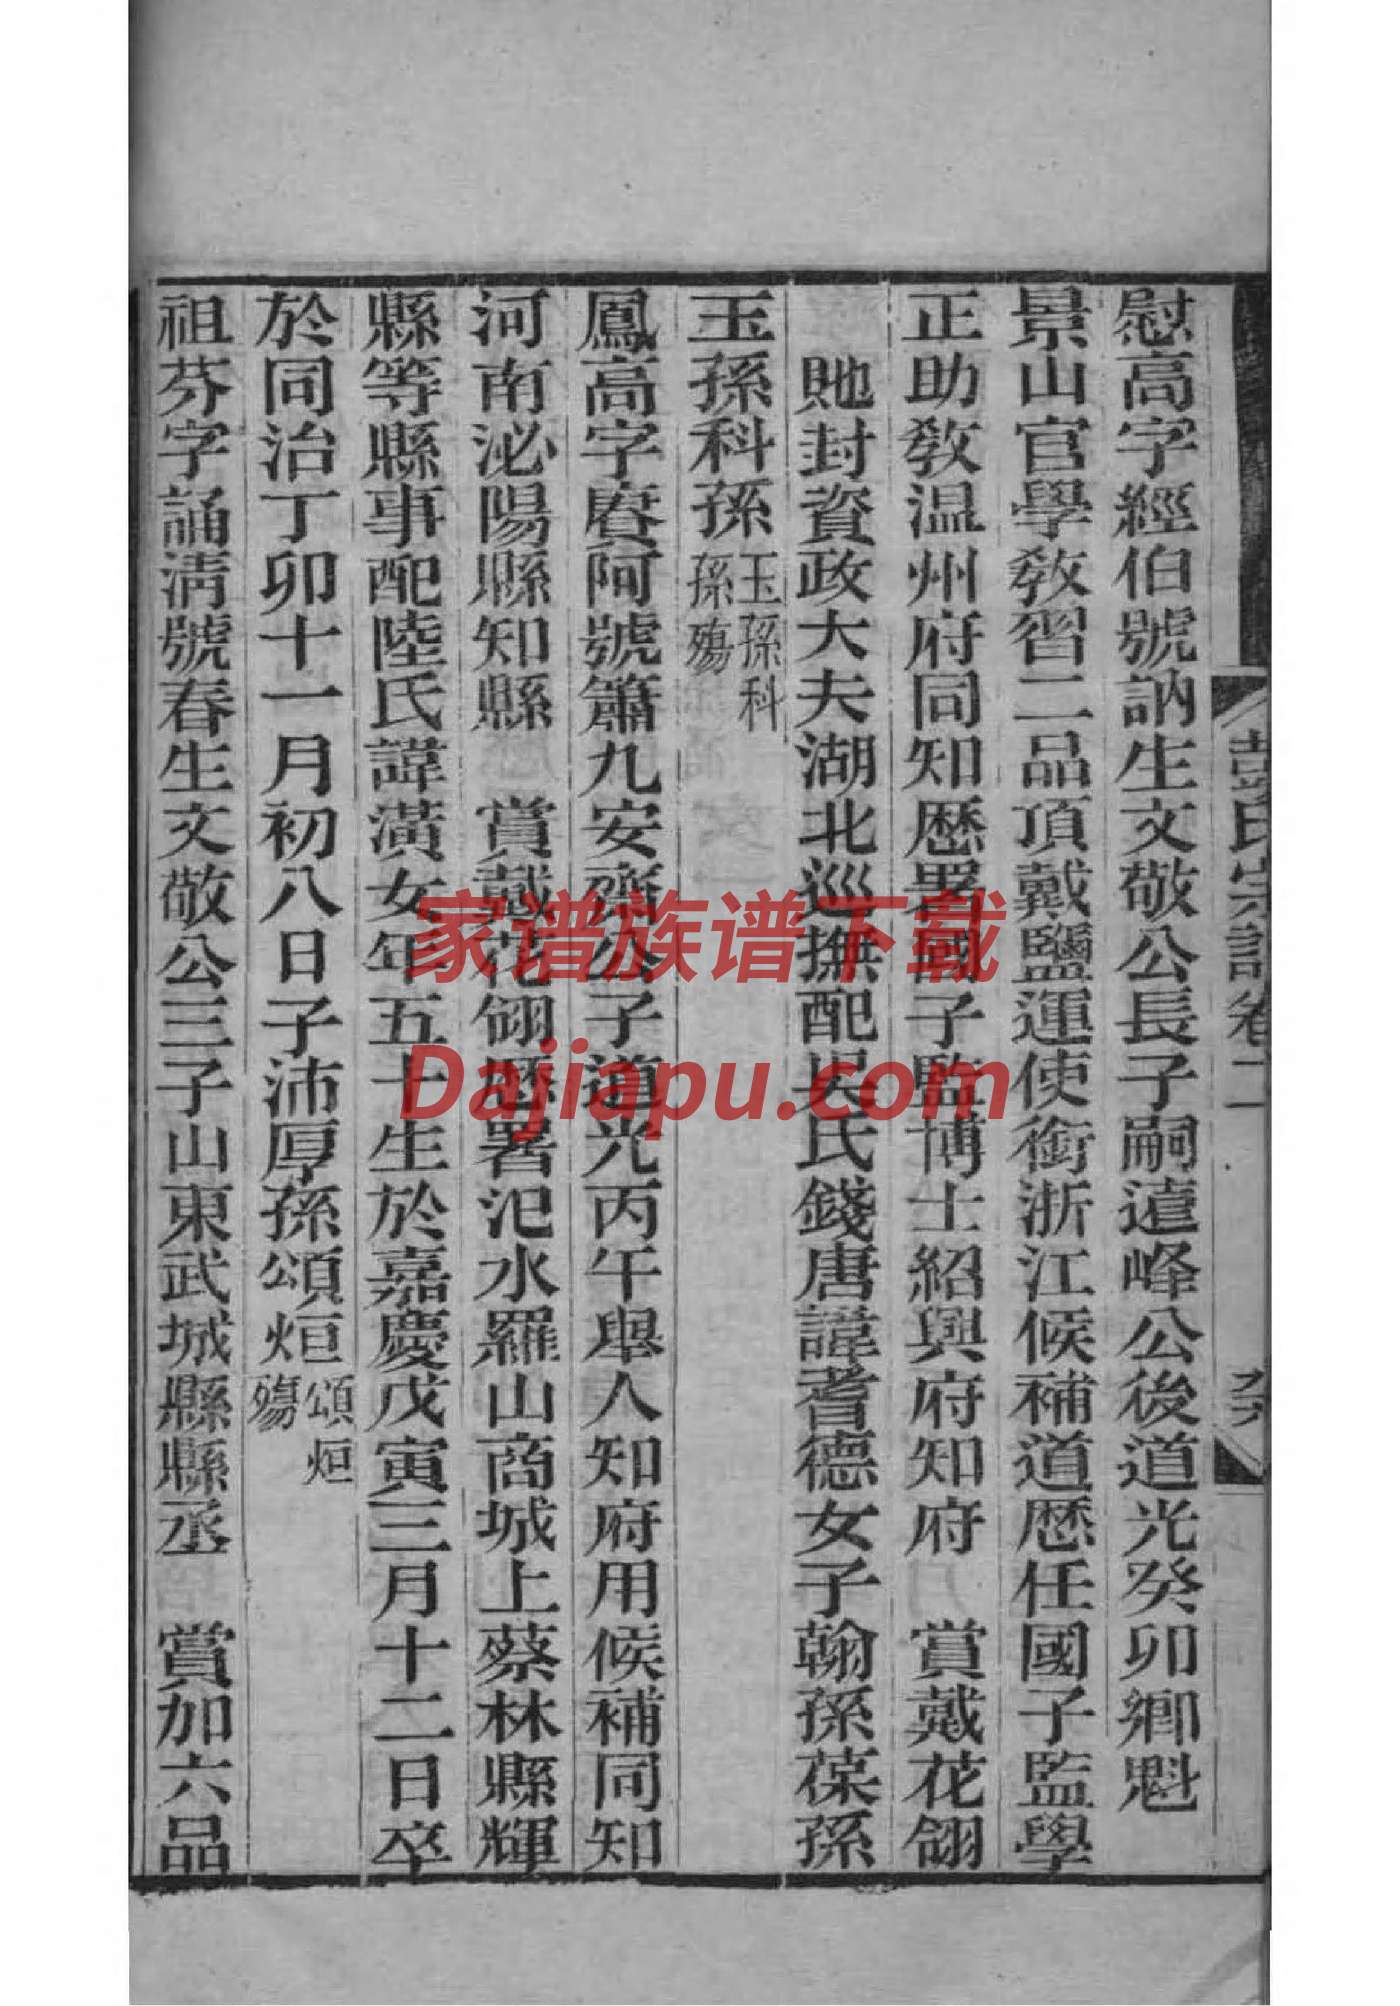 慰高字經伯號訥生文敬公長子嗣遠峰公後道光癸卯鄉魁
景山官學敎習二品頂戴鹽運使銜浙江候補道歷任國子監學
正助敎温州府同知歷署國子監博士紹興府知府 賞戴花翎
貤封資政大夫湖北巡撫配吳氏錢唐諱耆德女子翰孫葆孫
玉孫科孫玉孫科孫殤
鳳高字賡阿號簫九安齋公子道光丙午舉人知府用候補同知
河南泌陽縣知縣 賞戴花翎歷署汜水羅山商城上蔡林縣輝
縣等縣事配陸氏諱潢女年五十生於嘉慶戊寅三月十二日卒
於同治丁卯十一月初八日子沛厚孫頌烜頌烜殤
祖芬字誦淸號春生文敬公三子山東武城縣縣丞 賞加六品
彭氏宗譜卷二
六
家谱族谱下载
Dajiapu.com